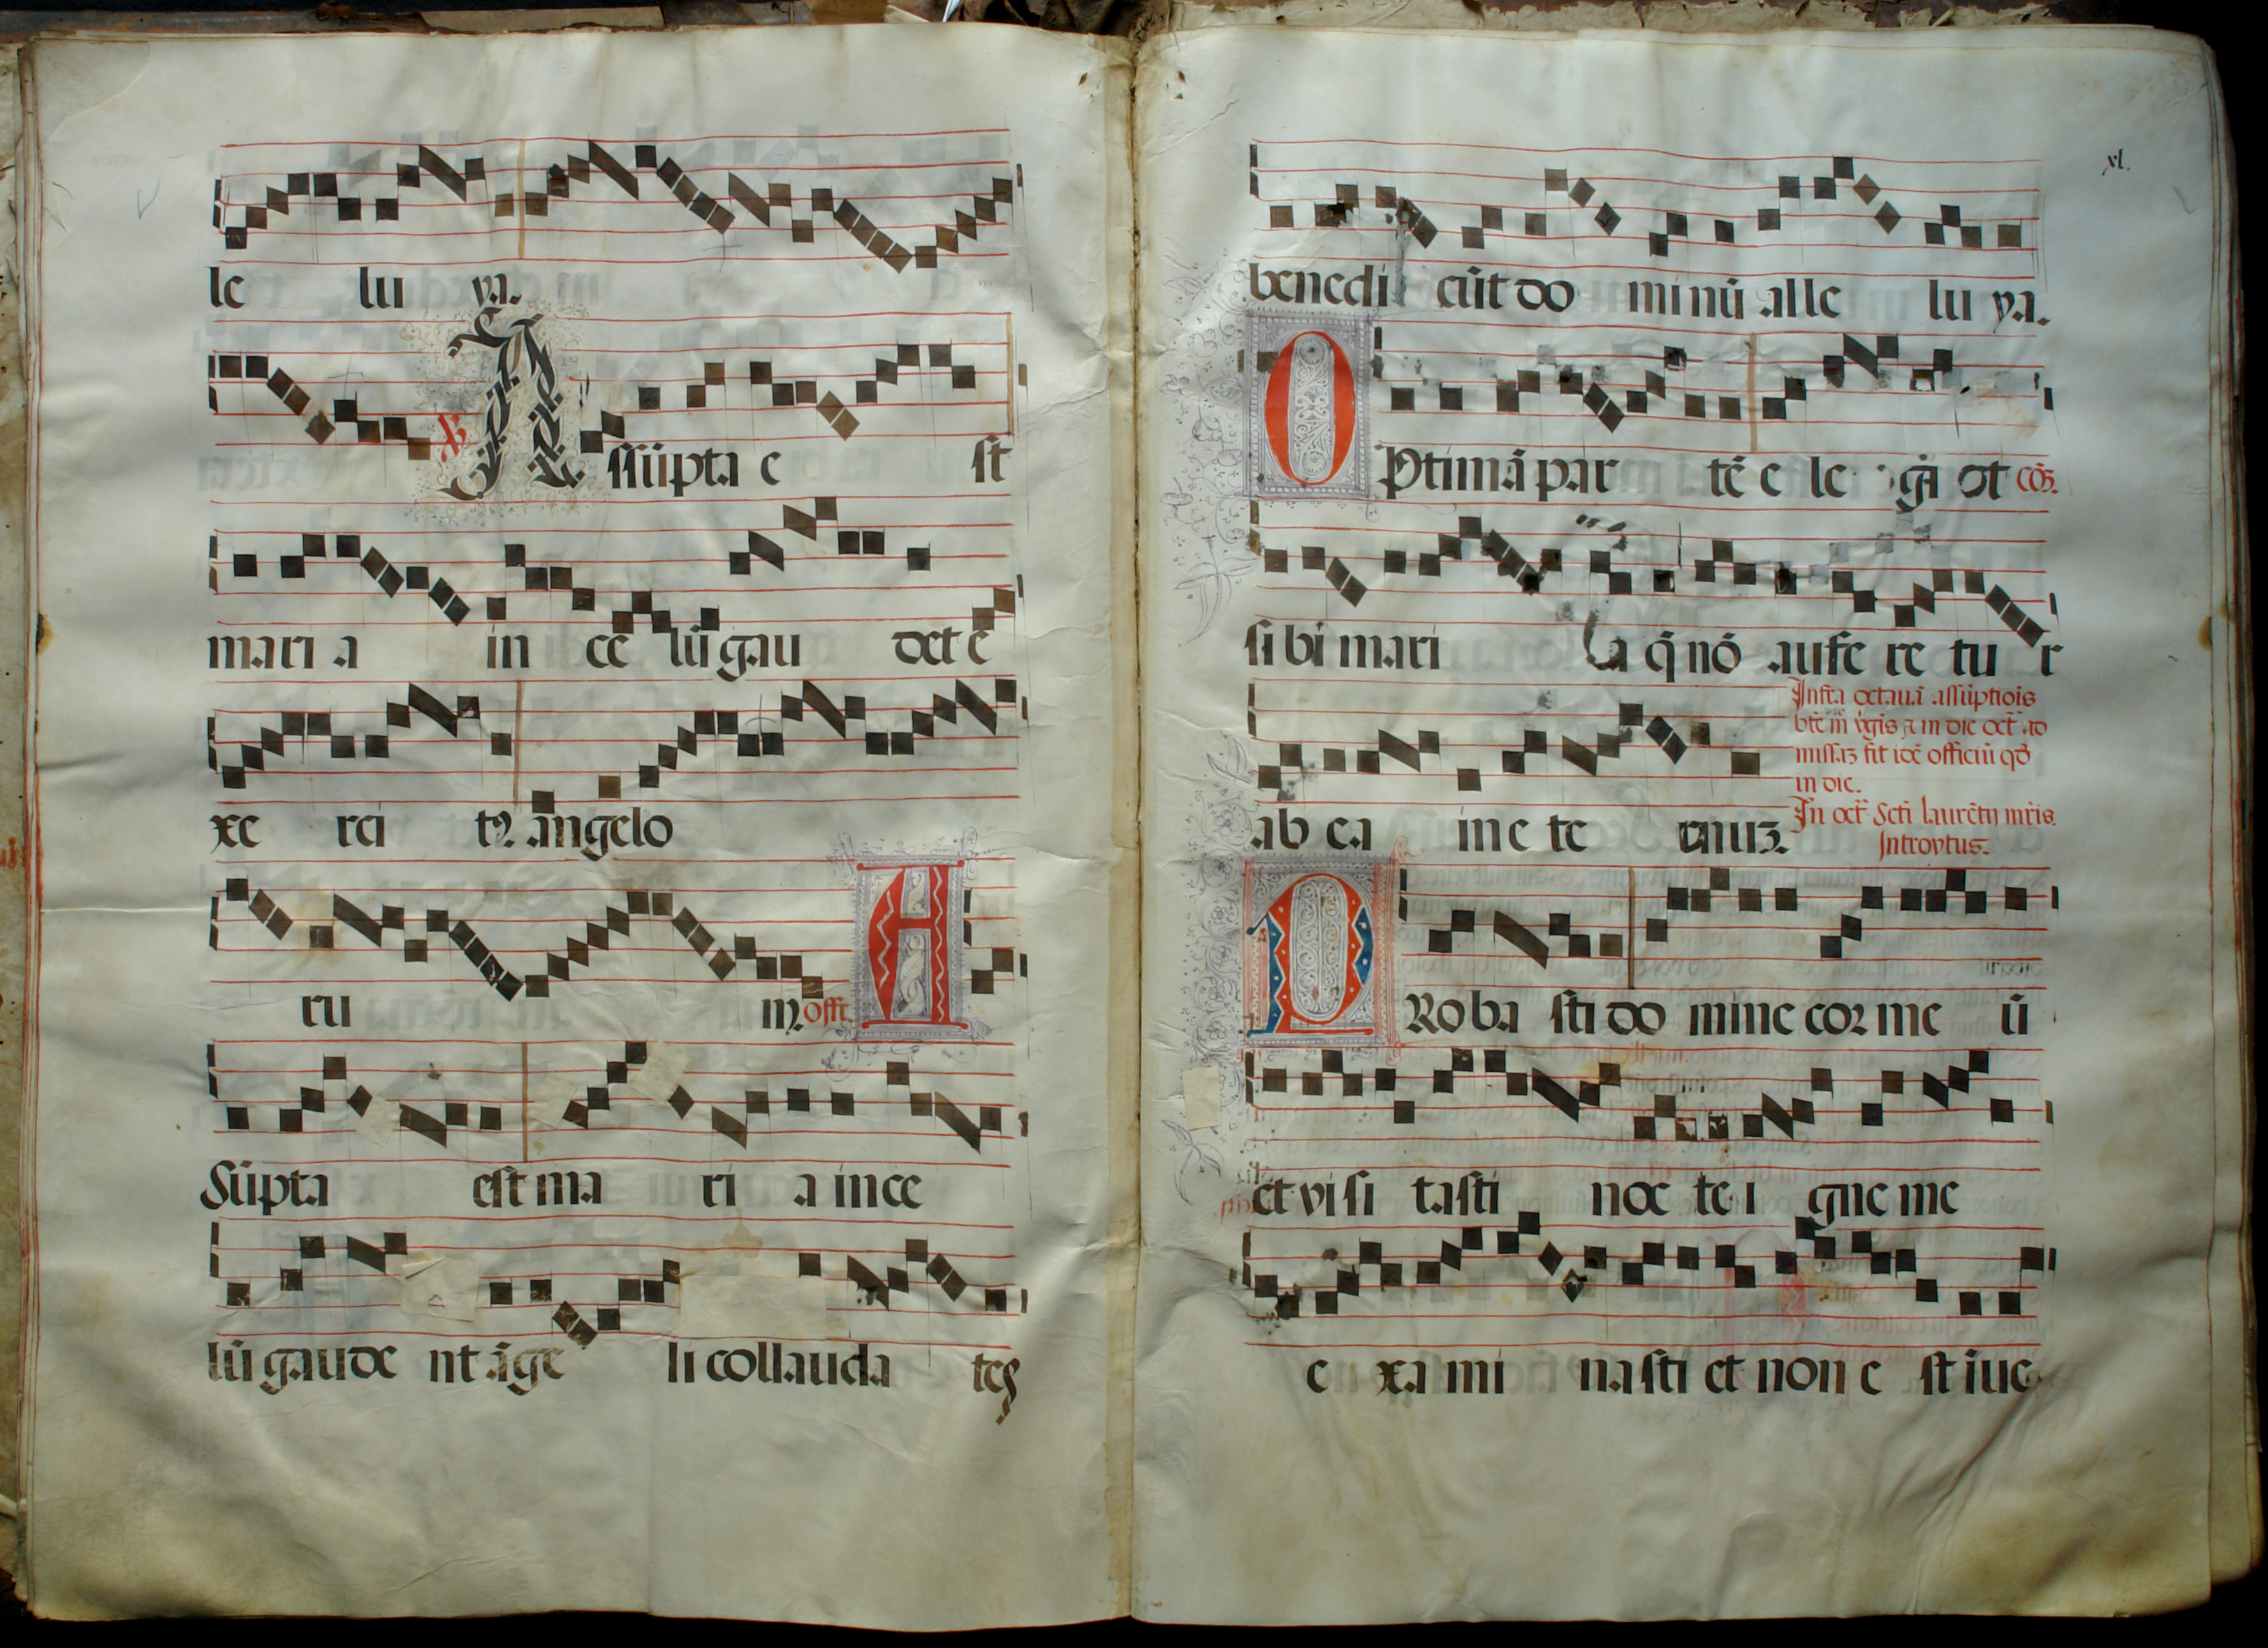 le lu ya.
℣ Assūpta e st
mari a in ce lū gau det e
xe rci tꝰ angelo
ru m. offr̄. A
Sūpta est ma ri a in ce
lū gaude nt āge li collauda tes
xl.
benedi cūt do minū alle lu ya.
OPtimā par tē e le git cō.
si bi mari a q̄ nō aufe re tu r
ab ea in e te rnuz. Infra octauā assūptiōis
bt̄e m̄ v̄gīs ⁊ in die oct̄ ad
missaz fit idē officiū qd̄
in die.
In oct̄ Scti laurētij mr̄is.
Introytus.
PRoba sti do mine cor me ū
et vi si tasti noc te i gne me
e xa mi nasti et non e st īue